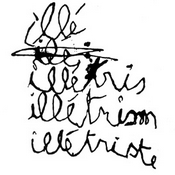 illé
illétris
illétrism
illétriste